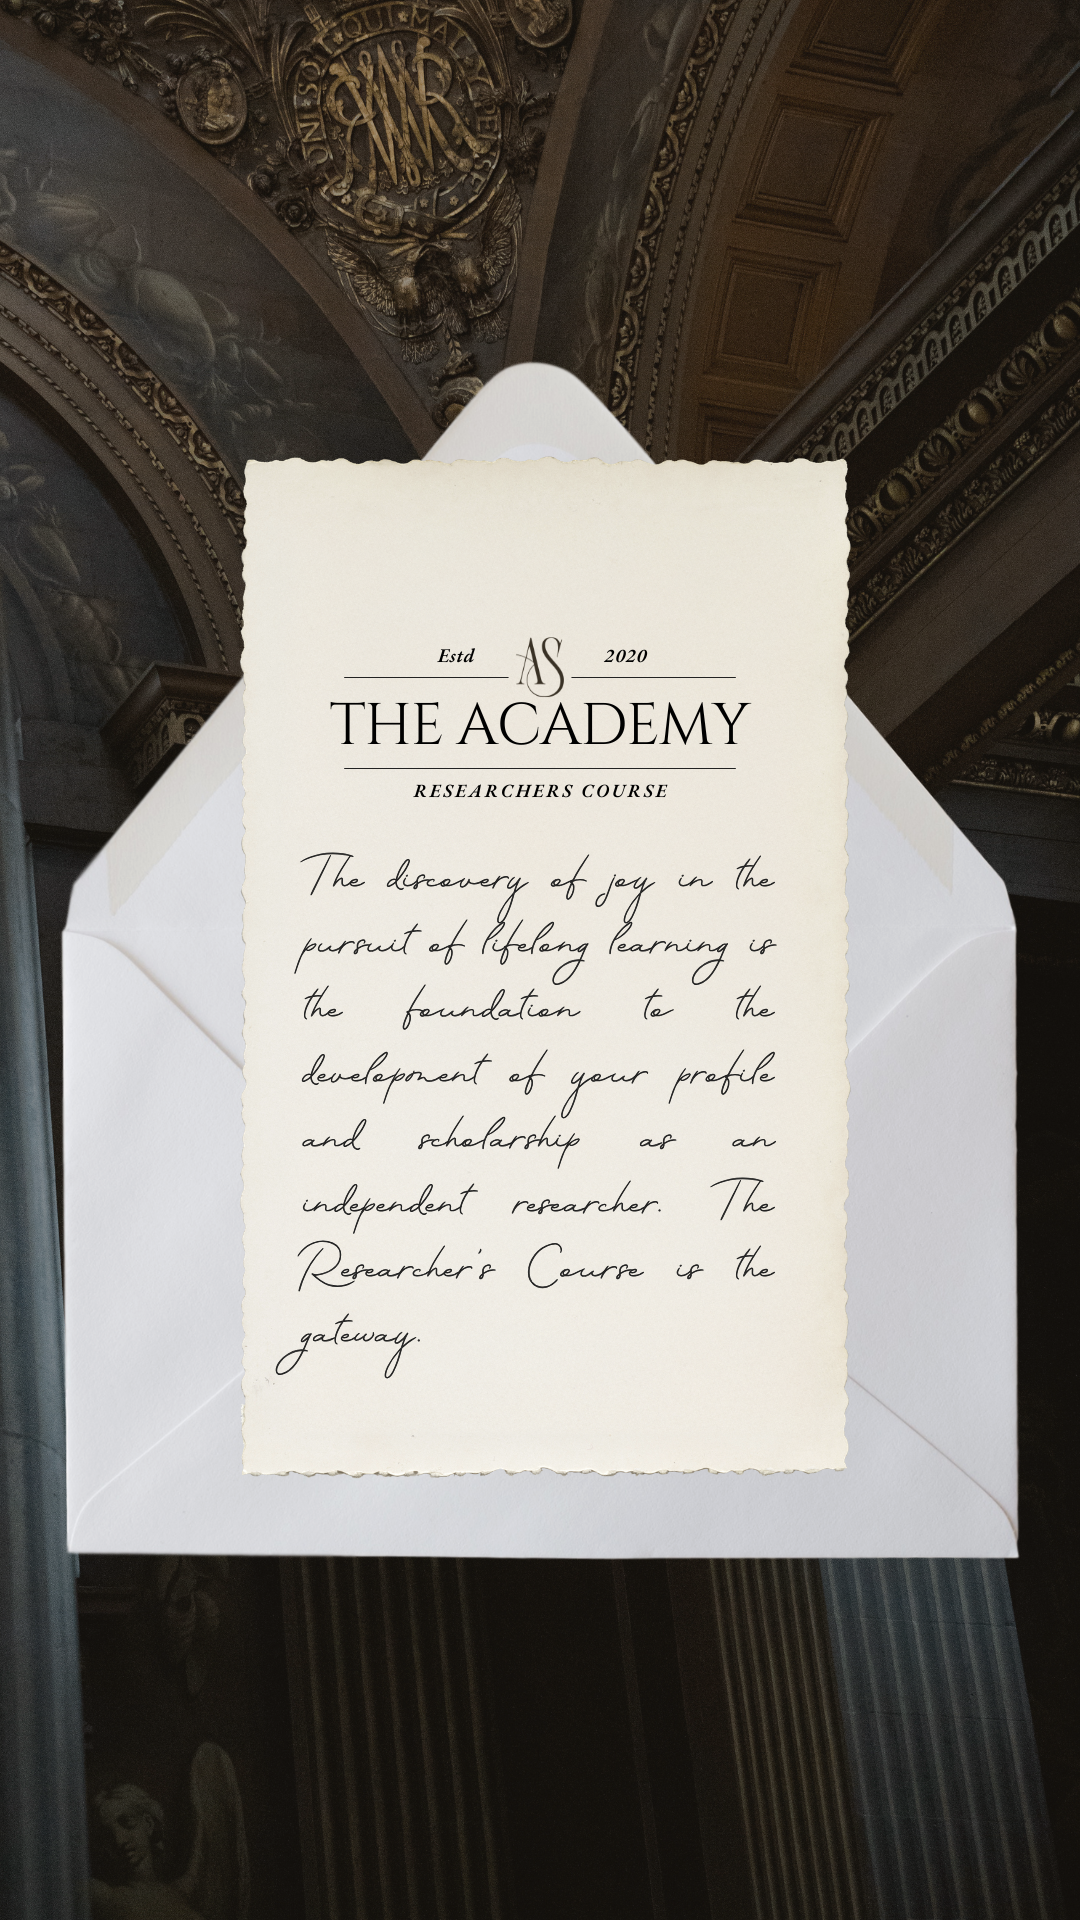 HONI SOIT QUI MAL Y PENSE
Estd AS 2020
THE ACADEMY
RESEARCHERS COURSE
The discovery of joy in the
pursuit of lifelong learning is
the foundation to the
development of your profile
and scholarship as an
independent researcher. The
Researcher's Course is the
gateway.